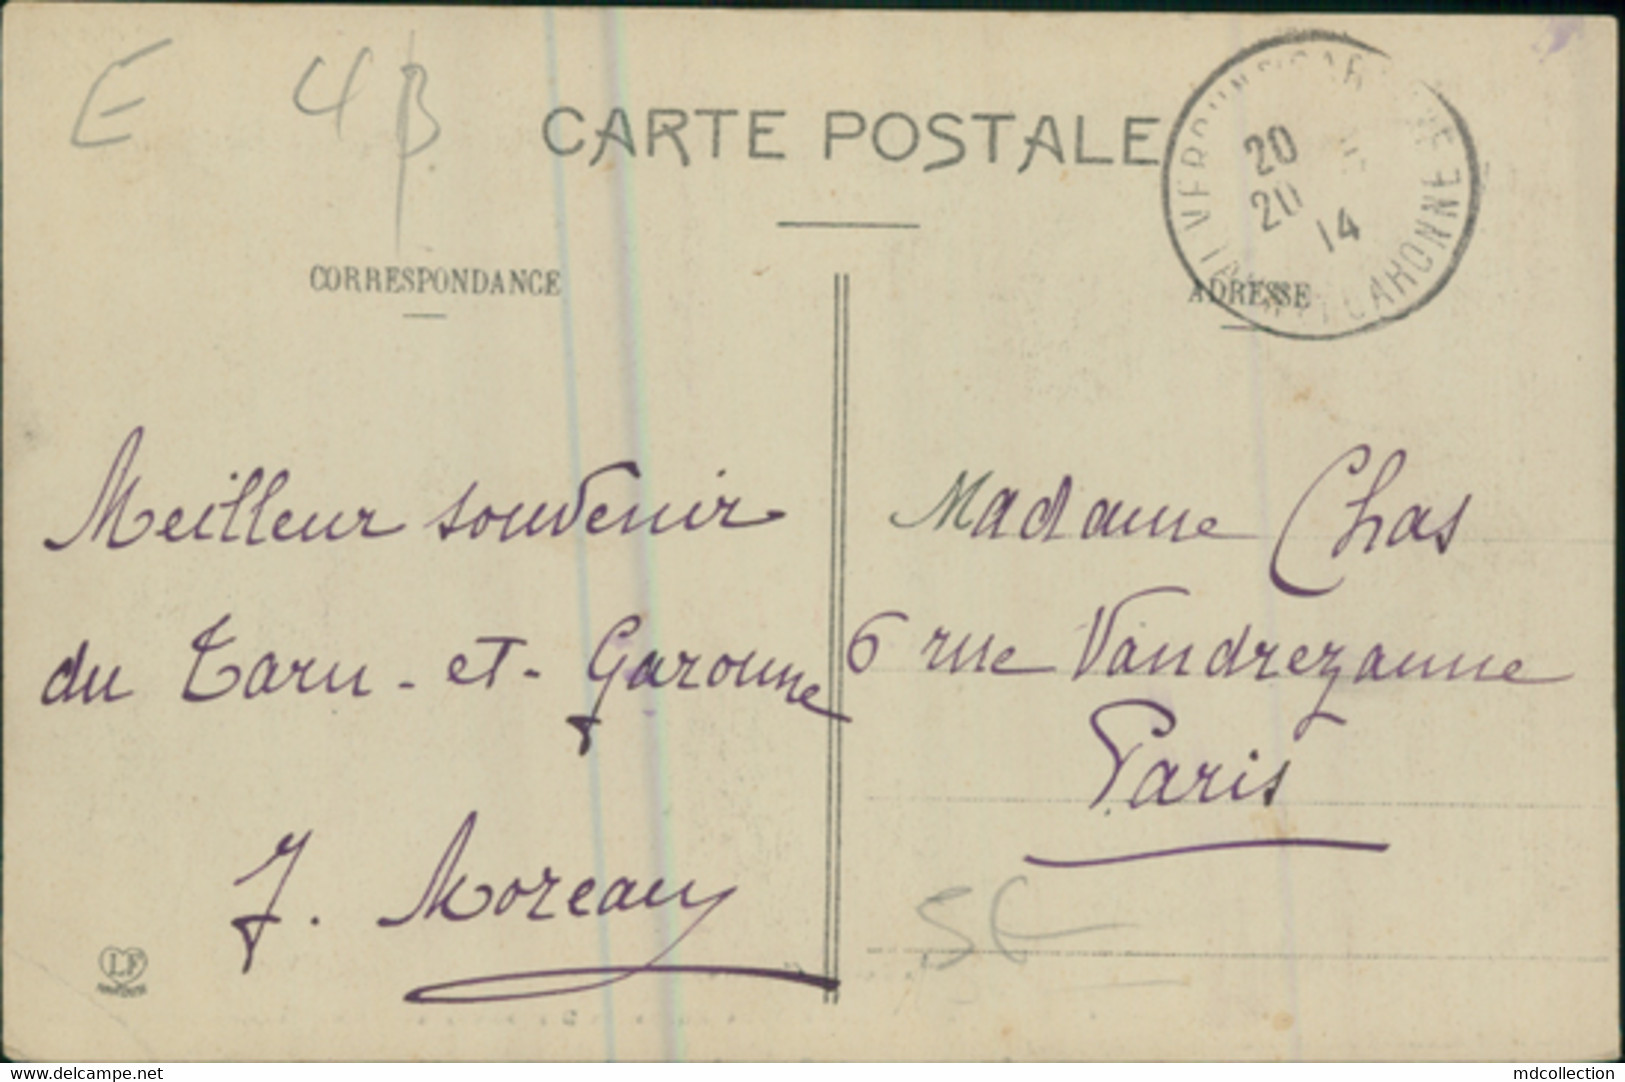 E 4 B
CARTE POSTALE
20
20 14
CORRESPONDANCE
ADRESSE
Meilleur souvenir
du Tarn-et-Garonne
J. Moreau
Madame Chas
6 rue Vandrezanne
Paris
5€
LF
www.delcampe.net
mdcollection